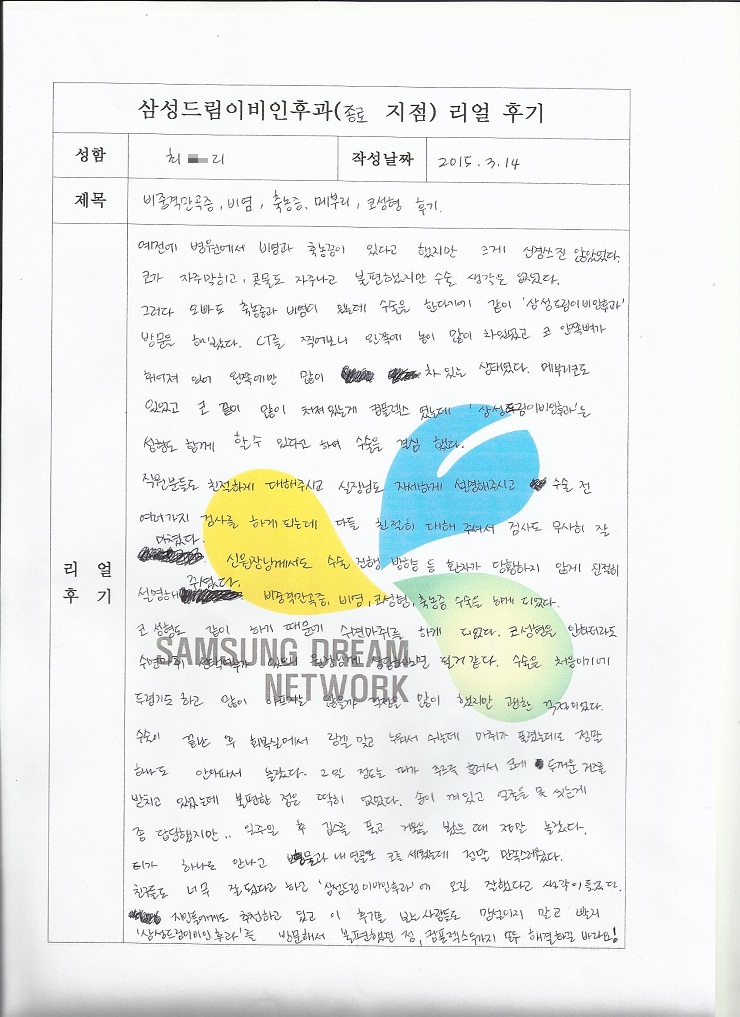 삼성드림이비인후과(종로 지점) 리얼 후기
성함 최 리 작성날짜 2015.3.14
제목 비중격만곡증, 비염, 축농증, 메부리, 코성형 후기.
리얼 후기
예전에 병원에서 비염과 축농증이 있다고 했지만 크게 신경쓰진 않았었다.
코가 자주막히고, 콧물도 자주나고 불편했지만 수술 생각은 없었다.
그러다 오빠도 축농증과 비염이 있는데 수술을 한다기에 같이 '삼성드림이비인후과'
방문을 해봤다. CT를 찍어보니 왼쪽에 농이 많이 차있었고 코 안쪽뼈가
휘어져 있어 왼쪽에만 많이 차 있는 상태였다. 메부리코도
있었고 코 끝이 많이 처져 있는게 컴플렉스 였는데 '삼성드림이비인후과'는
성형도 함께 할 수 있다고 하여 수술을 결심 했다.
직원분들도 친절하게 대해주시고 실장님도 자세하게 설명해주시고 수술 전
여러가지 검사를 하게 되는데 다들 친절히 대해 주셔서 검사도 무사히 잘
마쳤다.
신원장님께서도 수술 진행 방향 등 환자가 당황하지 않게 친절히
설명해 주셨다. 비중격만곡증, 비염, 코성형, 축농증 수술을 하게 되었다.
코 성형도 같이 하기 때문에 수면마취를 하게 되었다. 코성형을 안하더라도
수면마취 있으니 될거 같다. 수술은 처음이기에
두렵기도 하고 많이 아프지는 않을까 걱정을 많이 했지만 괜한 걱정이었다.
수술이 끝난 후 회복실에서 링겔 맞고 누워서 쉬는데 마취가 풀렸는데도 정말
하나도 안아파서 놀랐다. 2일 정도는 피가 주르륵 흘러서 코에 두꺼운 거즈를
받치고 있었는데 불편한 점은 딱히 없었다. 솜이 껴있고 얼굴을 못 씻는게
좀 답답했지만.. 일주일 후 깁스를 풀고 거울을 봤을 때 정말 놀랐다.
티가 하나도 안나고 내 연골로 코를 세웠는데 정말 만족스러웠다.
친구들도 너무 잘됐다고 하고 '삼성드림이비인후과'에 오길 잘했다고 생각이 들었다.
지인들에게도 추천하고 있고 이 후기를 보는 사람들도 망설이지 말고 빨리
'삼성드림이비인후과'를 방문해서 불편했던 점, 컴플렉스 두가지 모두 해결하길 바라요!
SAMSUNG DREAM
NETWORK